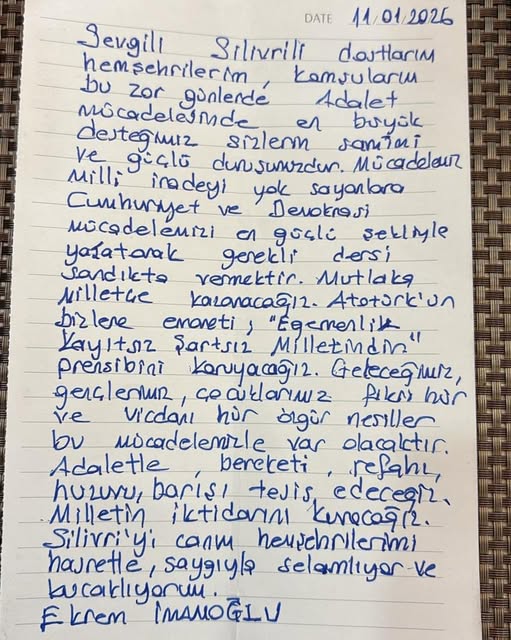 DATE 11/01/2026
Sevgili Silivrili dostlarım
hemşehrilerim, komşularım
bu zor günlerde Adalet
mücadelesinde en büyük
desteğimiz sizlerin samimi
ve güçlü duruşunuzdur. Mücadelemiz
Milli iradeyi yok sayanlara
Cumhuriyet ve Demokrasi
mücadelemizi en güçlü şekliyle
yaşatarak gerekli dersi
sandıkta vermektir. Mutlaka
Milletçe kazanacağız. Atatürk'ün
bizlere emaneti, "Egemenlik
Kayıtsız Şartsız Milletindir"
prensibini koruyacağız. Geleceğimiz,
gençlerimiz, çocuklarımız fikri hür
ve vicdanı hür özgür nesiller
bu mücadelemizle var olacaktır.
Adaletle, bereketi, refahı,
huzuru, barışı tesis edeceğiz.
Milletin iktidarını kuracağız.
Silivri'yi canım hemşehrilerimi
hasretle, saygıyla selamlıyor ve
kucaklıyorum.
Ekrem İMAMOĞLU